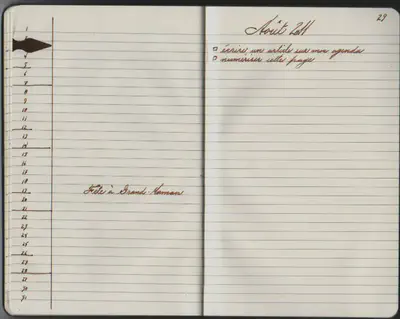 1
4
5
6
7
8
9
10
11
12
13
14
15
16
17
18
19 Fête à Grand-Maman
20
21
22
23
24
25
26
27
28
29
30
31
29
Août 2011
écrire un article sur mon agenda
numériser cette page